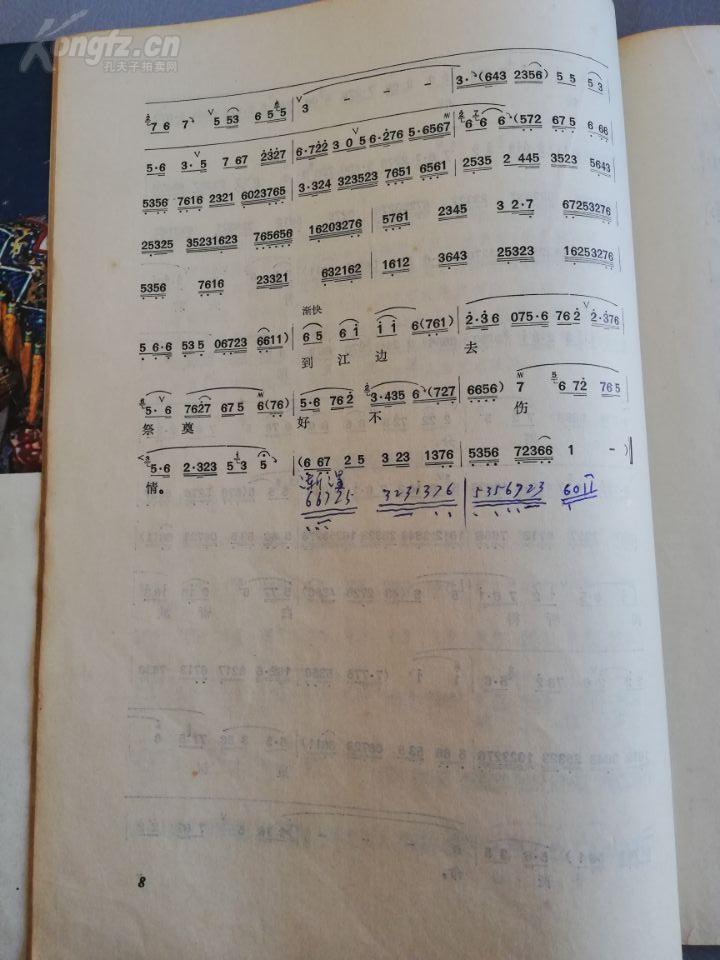 Kongfz.cn
孔夫子拍卖网
7 6 7 5 53 6 5 5 | 3 - - - | 3· (643 2356) 5 5 5 3
5·6 3· 5 7 67 2327 | 6·722 3 0 5 6·276 5·6567 | 6 6 6 (572 67 5 6 66
5356 7616 2321 6023765 | 3·324 323523 7651 6561 | 2535 2 445 3523 5643
25325 35231623 765656 16203276 | 5761 2345 3 2·7 67253276
5356 7616 23321 632162 | 1612 3643 25323 16253276
渐快
5 6·6 53 5 06723 6611) | 6 5 6 i i i 6(761) | 2·3 6 075·6 76 2 2·376
到 江 边 去
5· 6 7627 67 5 6(76) | 5·6 76 2 3·435 6 (727 | 6656) 7 6 72 76 5
祭 奠 好 不 伤
5·6 2·323 5 3 5 | (6 67 2 5 3 23 1376 | 5356 72366 1 - )
情。
渐慢
66725 3231376 | 5356723 6011
8